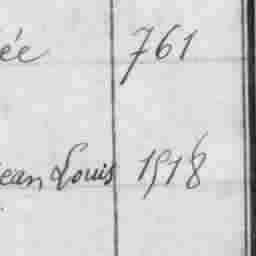 ée 761
Jean Louis 1518